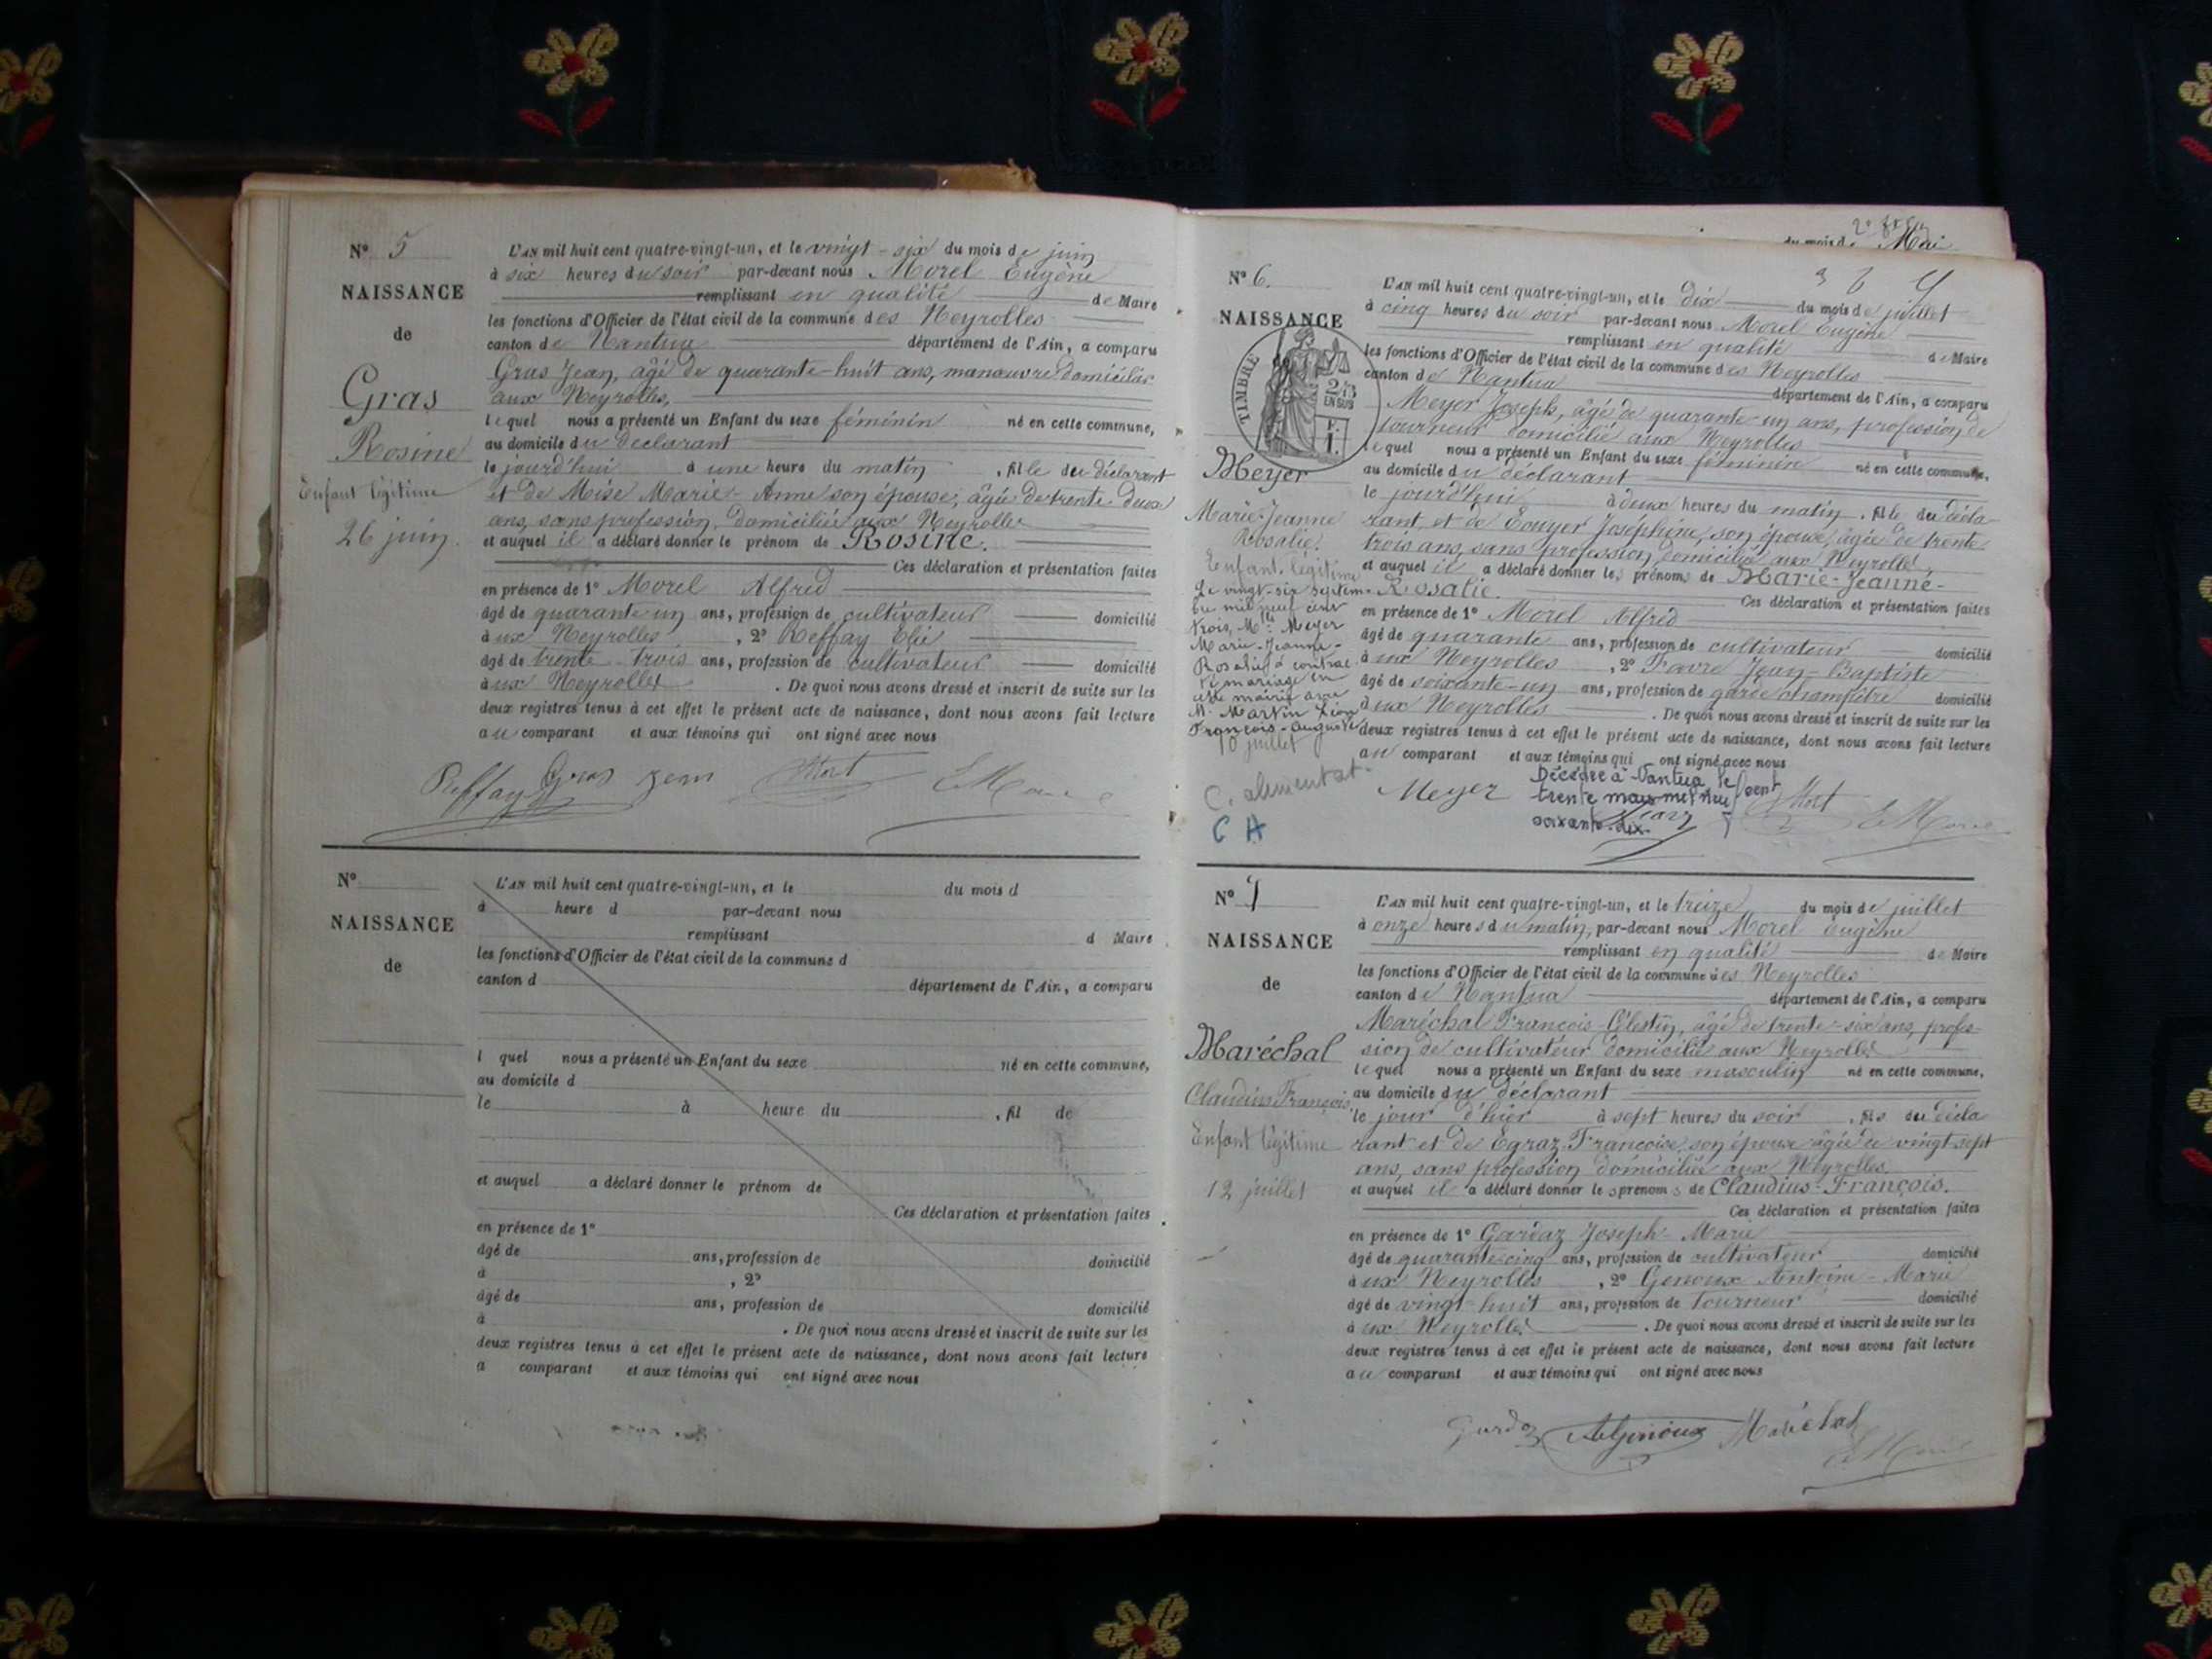 N° 5
NAISSANCE
de
Gras
Rosine
Enfant légitime
26 juin.
L'AN mil huit cent quatre-vingt-un, et le vingt-six du mois de juin
à six heures du soir par-devant nous Morel Eugène
remplissant en qualité de Maire
les fonctions d'Officier de l'état civil de la commune des Neyrolles
canton de Nantua département de l'Ain, a comparu
Gras Jean, âgé de quarante-huit ans, manœuvre domicilié
aux Neyrolles,
lequel nous a présenté un Enfant du sexe féminin né en cette commune,
au domicile du déclarant
le jourd'hui à une heure du matin, fille du déclarant
et de Moise Marie-Anne son épouse, âgée de trente-deux
ans, sans profession, domiciliée aux Neyrolles
et auquel il a déclaré donner le prénom de Rosine.
Ces déclaration et présentation faites
en présence de 1° Morel Alfred
âgé de quarante-un ans, profession de cultivateur domicilié
aux Neyrolles, 2° Reffay Elie
âgé de trente-trois ans, profession de cultivateur domicilié
aux Neyrolles. De quoi nous avons dressé et inscrit de suite sur les
deux registres tenus à cet effet le présent acte de naissance, dont nous avons fait lecture
au comparant et aux témoins qui ont signé avec nous
Reffay Gras Jean
N°
NAISSANCE
de
L'AN mil huit cent quatre-vingt-un, et le du mois d
à heure d par-devant nous
remplissant d Maire
les fonctions d'Officier de l'état civil de la commune d
canton d département de l'Ain, a comparu
l quel nous a présenté un Enfant du sexe né en cette commune,
au domicile d
le à heure du , fil de
et auquel a déclaré donner le prénom de
Ces déclaration et présentation faites
en présence de 1°
âgé de ans, profession de domicilié
à , 2°
âgé de ans, profession de domicilié
à . De quoi nous avons dressé et inscrit de suite sur les
deux registres tenus à cet effet le présent acte de naissance, dont nous avons fait lecture
a comparant et aux témoins qui ont signé avec nous
du mois de Mai
N° 6.
NAISSANCE
TIMBRE
2/10
EN SUS
F.
1.
Meyer
Marie-Jeanne
Rosalie.
Enfant légitime
Le vingt-six septem-
bre mil neuf cent
trois, Mlle Meyer
Marie-Jeanne-
Rosalie a contrac-
té mariage en
cette mairie avec
M. Martin Léon
François-Auguste
10 juillet
C. alimentat.
C A
L'AN mil huit cent quatre-vingt-un, et le dix du mois de juillet
à cinq heures du soir par-devant nous Morel Eugène
remplissant en qualité de Maire
les fonctions d'Officier de l'état civil de la commune des Neyrolles
canton de Nantua département de l'Ain, a comparu
Meyer Joseph, âgé de quarante-un ans, profession de
tourneur domicilié aux Neyrolles
lequel nous a présenté un Enfant du sexe féminin né en cette commune,
au domicile du déclarant
le jourd'hui à deux heures du matin, fille du décla-
rant et de Josephine, son épouse, âgée de trente-
trois ans, sans profession, domiciliée aux Neyrolles,
et auquel il a déclaré donner les prénoms de Marie-Jeanne-
Rosalie.
Ces déclaration et présentation faites
en présence de 1° Morel Alfred
âgé de quarante ans, profession de cultivateur domicilié
aux Neyrolles, 2° Favre Jean-Baptiste
âgé de soixante-un ans, profession de garde champêtre domicilié
aux Neyrolles. De quoi nous avons dressé et inscrit de suite sur les
deux registres tenus à cet effet le présent acte de naissance, dont nous avons fait lecture
au comparant et aux témoins qui ont signé avec nous
Décédée à Nantua le
trente mars mil neuf cent
soixante-dix.
Meyer
N° 7
NAISSANCE
de
Maréchal
Claudius François.
Enfant légitime
12 juillet
L'AN mil huit cent quatre-vingt-un, et le treize du mois de juillet
à onze heures du matin, par-devant nous Morel Eugène
remplissant en qualité de Maire
les fonctions d'Officier de l'état civil de la commune des Neyrolles
canton de Nantua département de l'Ain, a comparu
Maréchal François-Célestin, âgé de trente-six ans, profes-
sion de cultivateur domicilié aux Neyrolles
lequel nous a présenté un Enfant du sexe masculin né en cette commune,
au domicile du déclarant
le jour d'hier à sept heures du soir, fils du décla-
rant et de Egraz Françoise, son épouse âgée de vingt-sept
ans, sans profession domiciliée aux Neyrolles
et auquel il a déclaré donner les prénoms de Claudius-François.
Ces déclaration et présentation faites
en présence de 1° Gardaz Joseph-Marie
âgé de quarante-cinq ans, profession de cultivateur domicilié
aux Neyrolles, 2° Genoux Antoine-Marie
âgé de vingt-huit ans, profession de tourneur domicilié
aux Neyrolles. De quoi nous avons dressé et inscrit de suite sur les
deux registres tenus à cet effet le présent acte de naissance, dont nous avons fait lecture
au comparant et aux témoins qui ont signé avec nous
Gardaz Maréchal